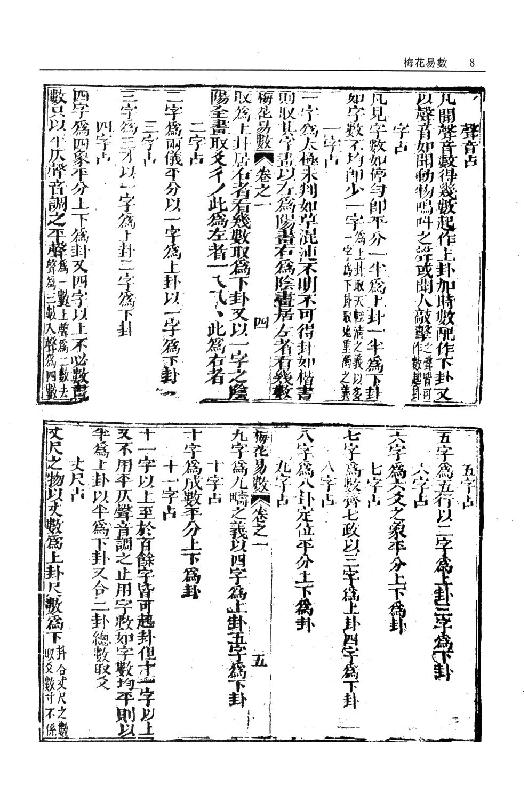 梅花易數 8
聲音占
凡聞聲音數得幾數起作上卦加時數配作下卦又
以聲音如聞動物鳴叫之聲或聞人敲擊之聲皆可作數起卦
字占
凡見字數如停勻即平分一半為上卦一半為下卦
如字數不均即少一字為上卦取天輕清之義以多一字為下卦取地重濁之義
一字占
一字為太極未判如草混沌不明不可得卦如楷書
則取其字畫以左為陽畫右為陰畫居左者看幾數
梅花易數 卷之一 四
取為上卦居右者看幾數取為下卦又以一字之陰
陽全畫取爻彳丿此為左者一乀乁丶此為右者
二字占
二字為兩儀平分以一字為上卦以一字為下卦
三字占
三字為三才以一字為上卦二字為下卦
四字占
四字為四象平分上下為卦又四字以上不必數畫
數只以平仄聲音調之平聲為一數上聲為二數去聲為三數入聲為四數
五字占
五字為五行以二字為上卦三字為下卦
六字占
六字為六爻之象平分上下為卦
七字占
七字為數齊七政以三字為上卦四字為下卦
八字占
八字為八卦定位平分上下為卦
九字占
梅花易數 卷之一 五
九字為九疇之義以四字為上卦五字為下卦
十字占
十字為成數平分上下為卦
十一字占
十一字以上至於百餘字皆可起卦但十一字以上
又不用平仄聲音調之止用字數如字數均平則以
半為上卦以半為下卦又合二卦總數取爻
丈尺占
丈尺之物以丈數為上卦尺數為下卦合丈尺之數取爻數寸不係